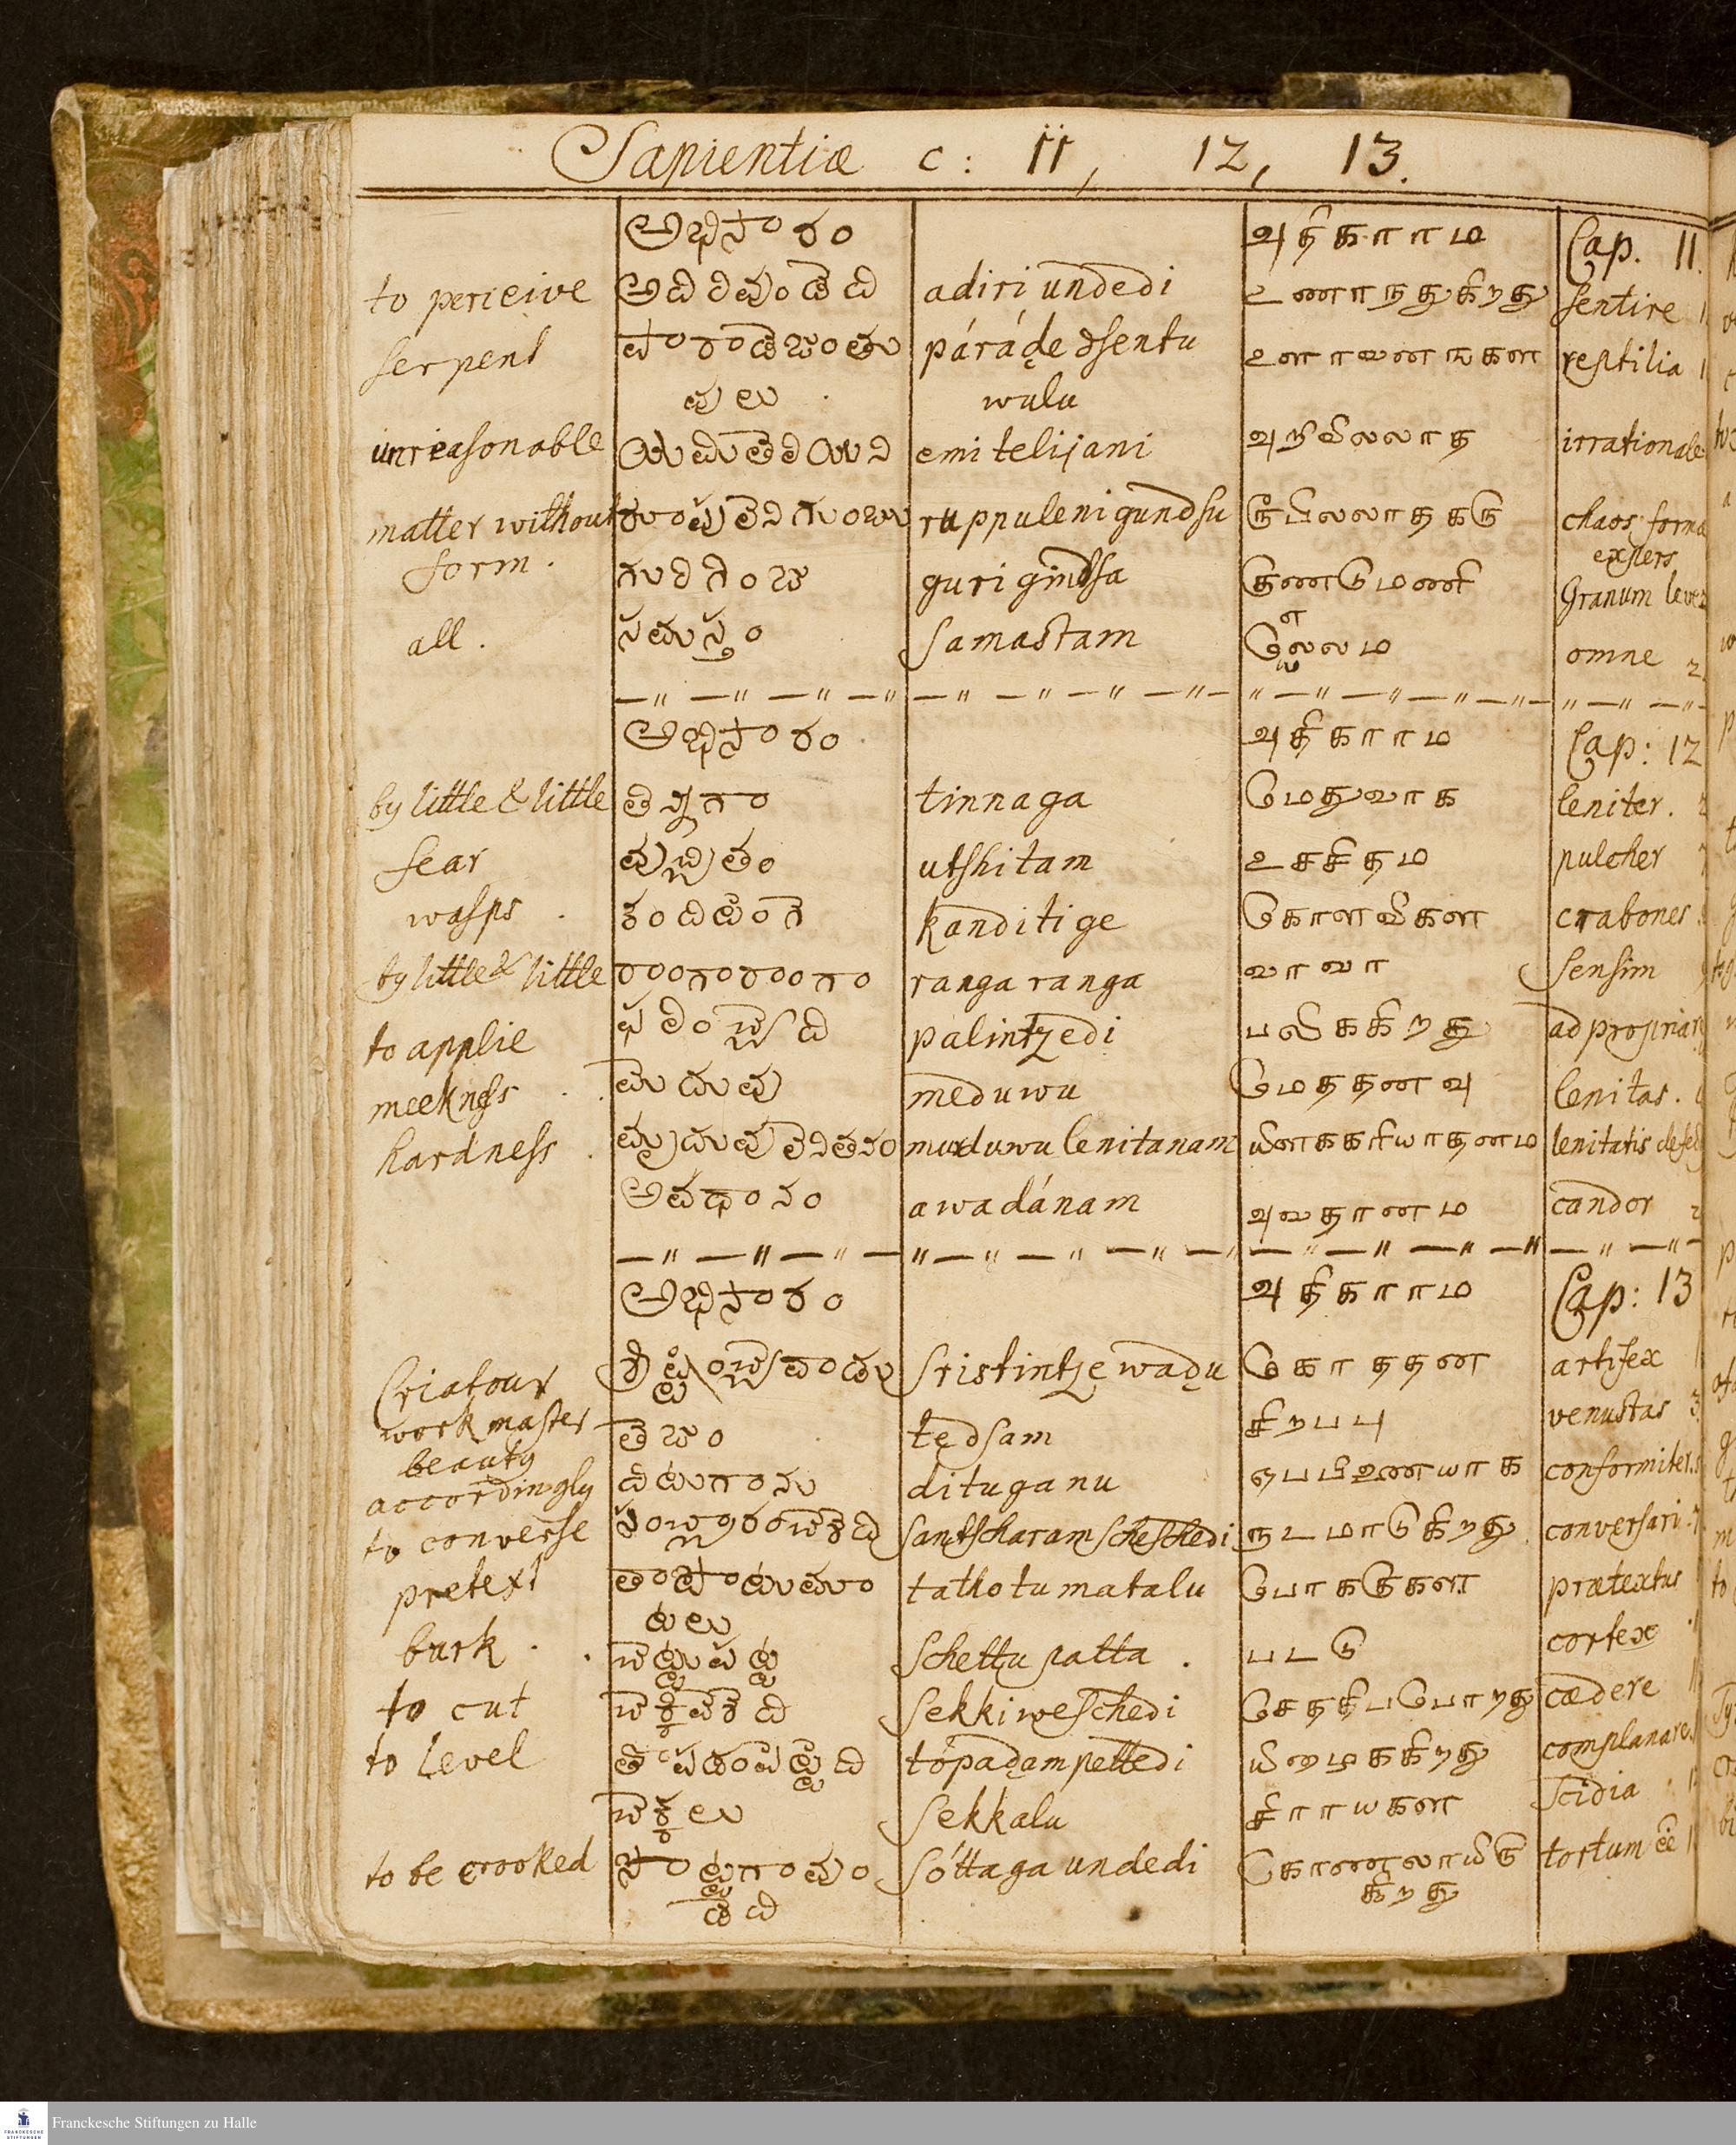 Sapientiæ c: 11, 12, 13.
అధికారం அதிகாரம Cap. 11.
to perieive అదిరివుండెది adiri undedi உணாநதுகிறது sentire
serpent పారాడెజంతు párádę dsentu உளாவனஙகள reptilia
వులు wulu
unreasonable యెమితెలియని emi telijani அறிவிலலாத irrationale
matter without రుంపులెనిగుంజు ruppulenigundsu ரூபிலலாத கரு chaos forma
form. expers
గురిగింజ guri gindsa குணடுமணி Granum leve
all. సమస్తం samastam omne 2
అధికారం அதிகாரம Cap: 12
by little & little తిన్నగా tinnaga மெதுவாக leniter.
fear వుచ్ఛితం utshitam உசசிதம pulcher
wasps కందిటిగె kanditige கொளவிகள crabones
by little & little రంగరంగ ranga ranga வரவர sensim
to applie పలించ్చెది palintzedi பலிககிறது ad propriar
meekness మెదువు meduwu மெததனவு lenitas.
hardness మ్రుదువు లెనితనం muduwu lenitanam யிளககரியாதனம lenitatis defe
అవదానం awadánam அவதானம candor 2
అధికారం அதிகாரம Cap: 13
Criatour స్రిష్టించ్చెవాడు Sristintzę wadu கொததன artifex
work master తెజం tędsam சிறபபு venustas 3
beauty
accordingly దిటుగాను dituganu ஒபபிணையாக conformiter.
to converse సంచ్చారంచెసెది santscharam scheschedi நடமாடுகிறது conversari.
pretext tathotu matalu போககுகள prætextus
టలు
bark. చెట్టుపట్ట schettu patta. படடு cortex
to cut చెక్కివెసెది sekki weschedi செதகிபபோறது cædere
to level తోపడంపెట్టెది tópadampettedi யிழைககிறது complanare
చెక్కలు sekkalu சிராயகள scidia
to be crooked సొట్టగావుం sóttaga undedi கோணலாயிரு tortum
డెది கிறது
Franckesche Stiftungen zu Halle